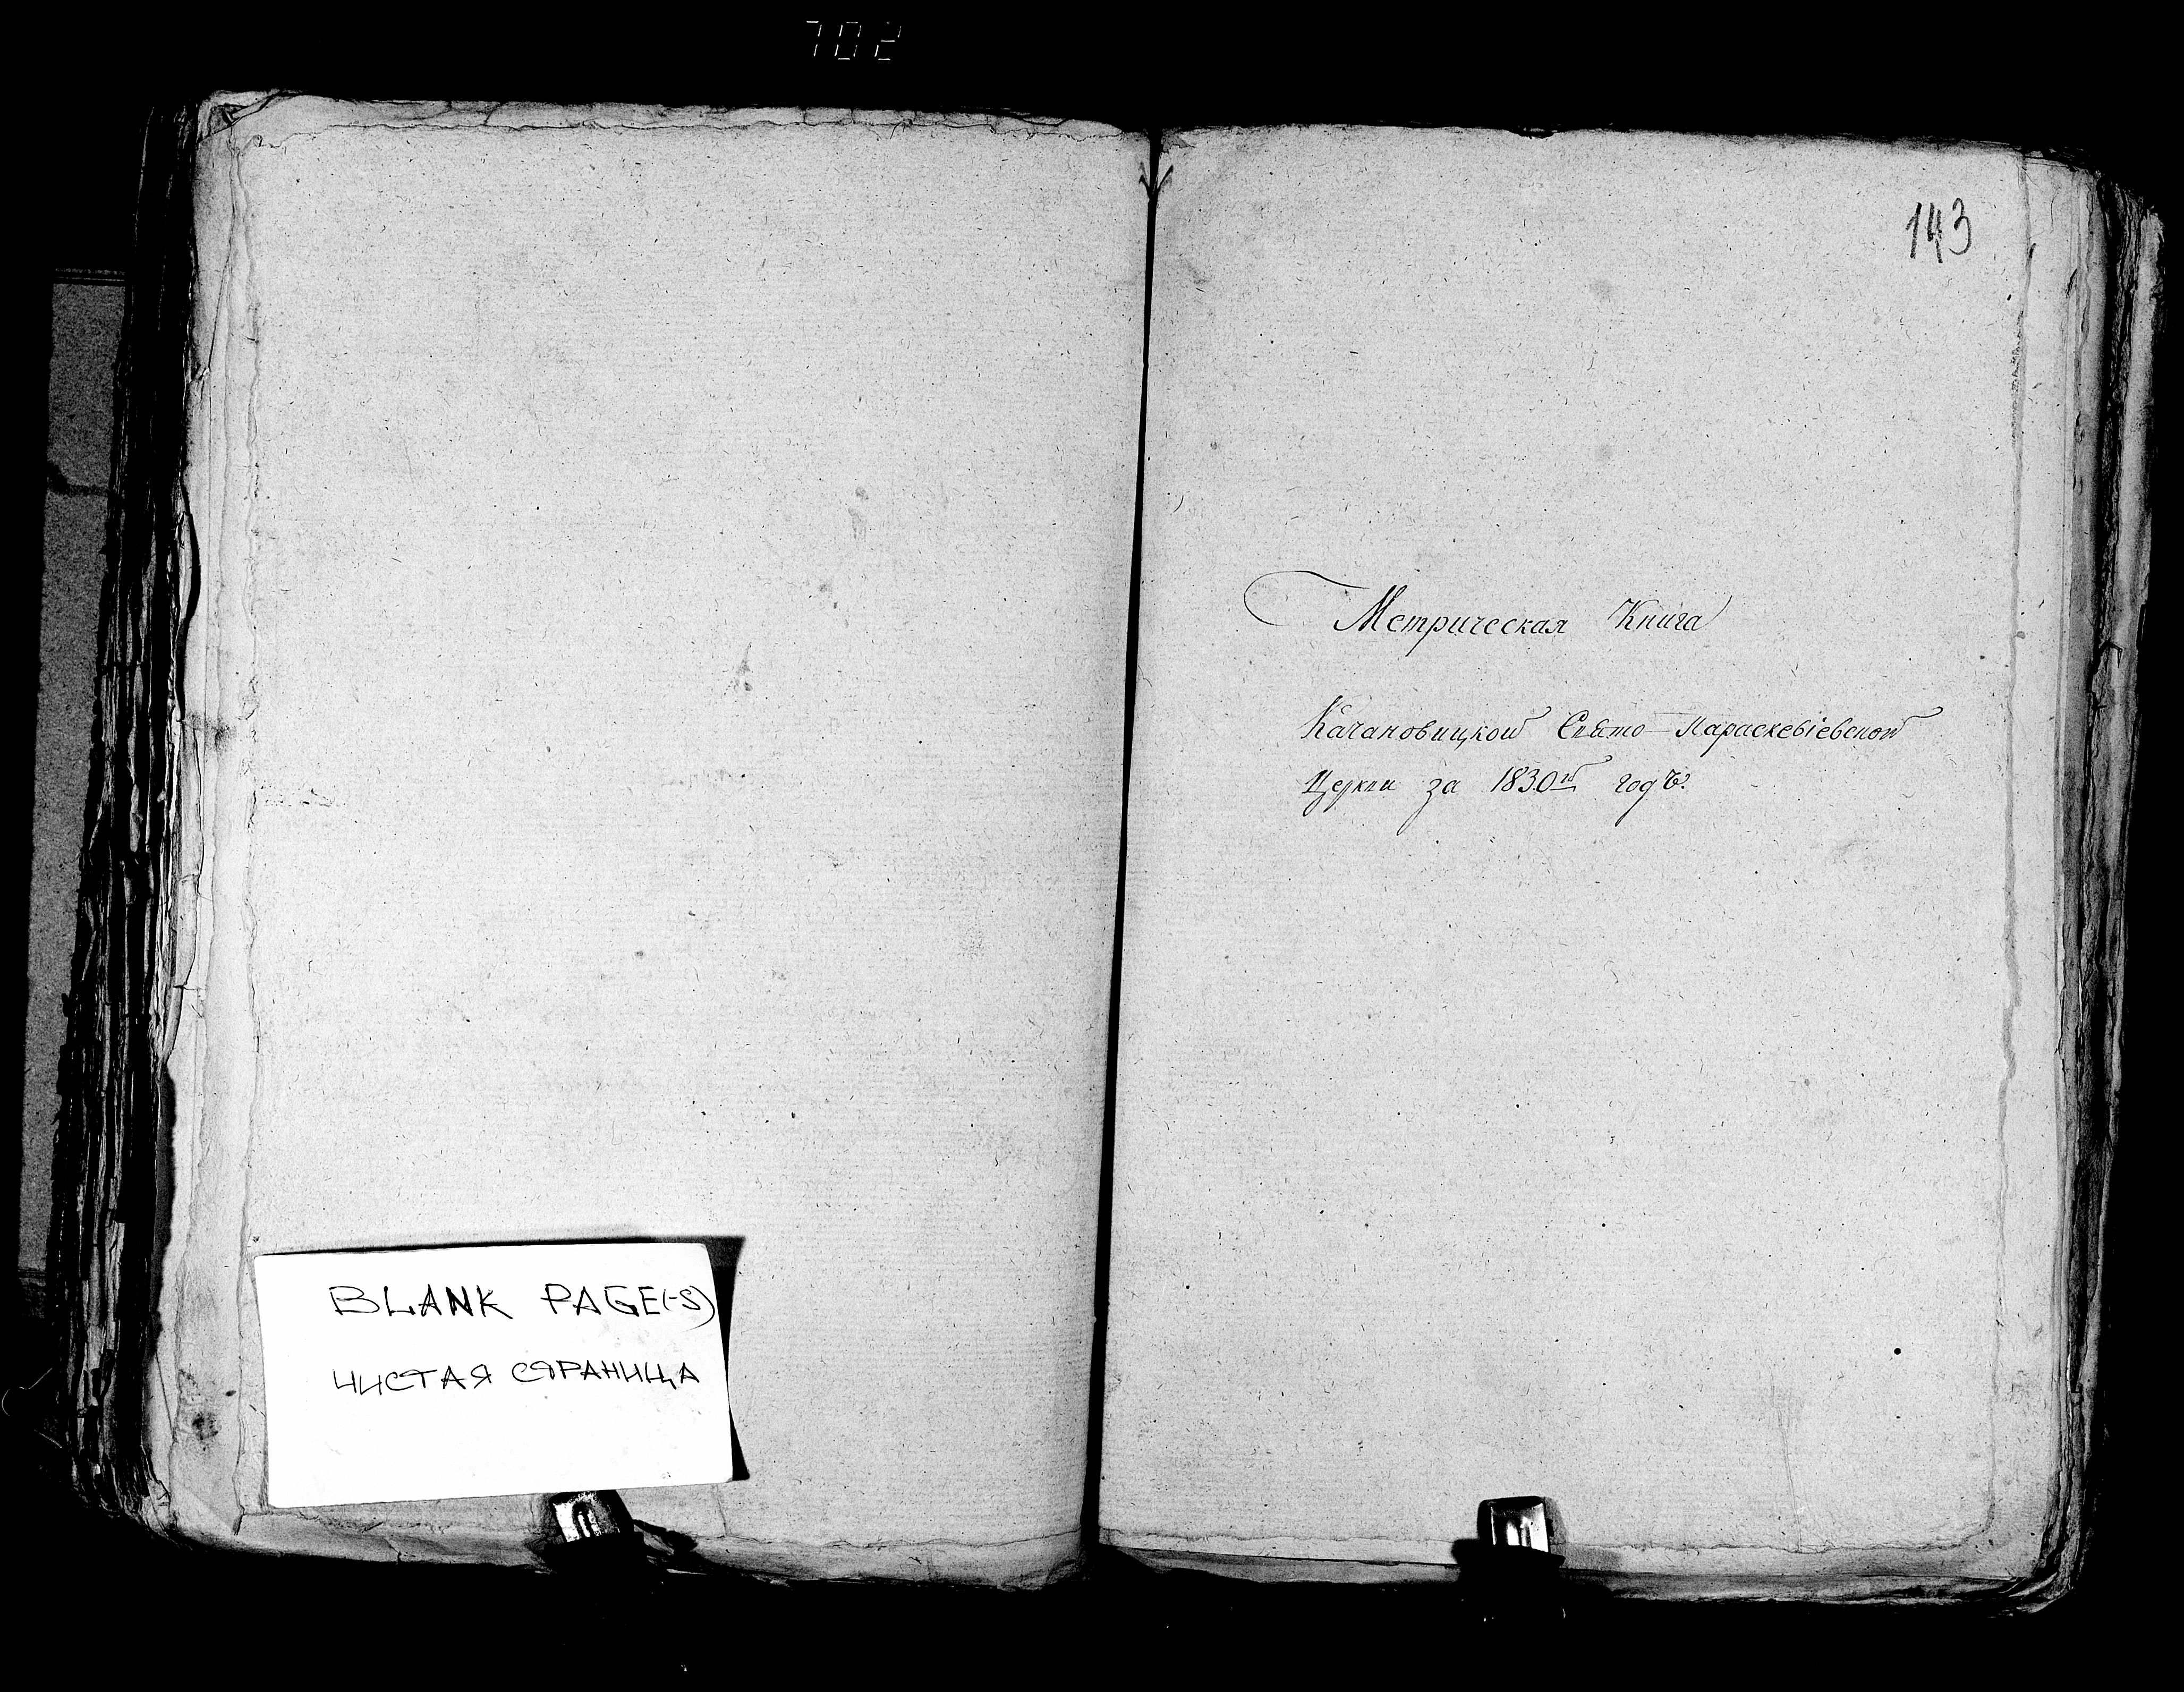 702
BLANK PAGE(-S)
ЧИСТАЯ СТРАНИЦА
143
Метрическая Книга
Качановицкой Свято-Параскевіевской
Церкви за 1830й годъ.